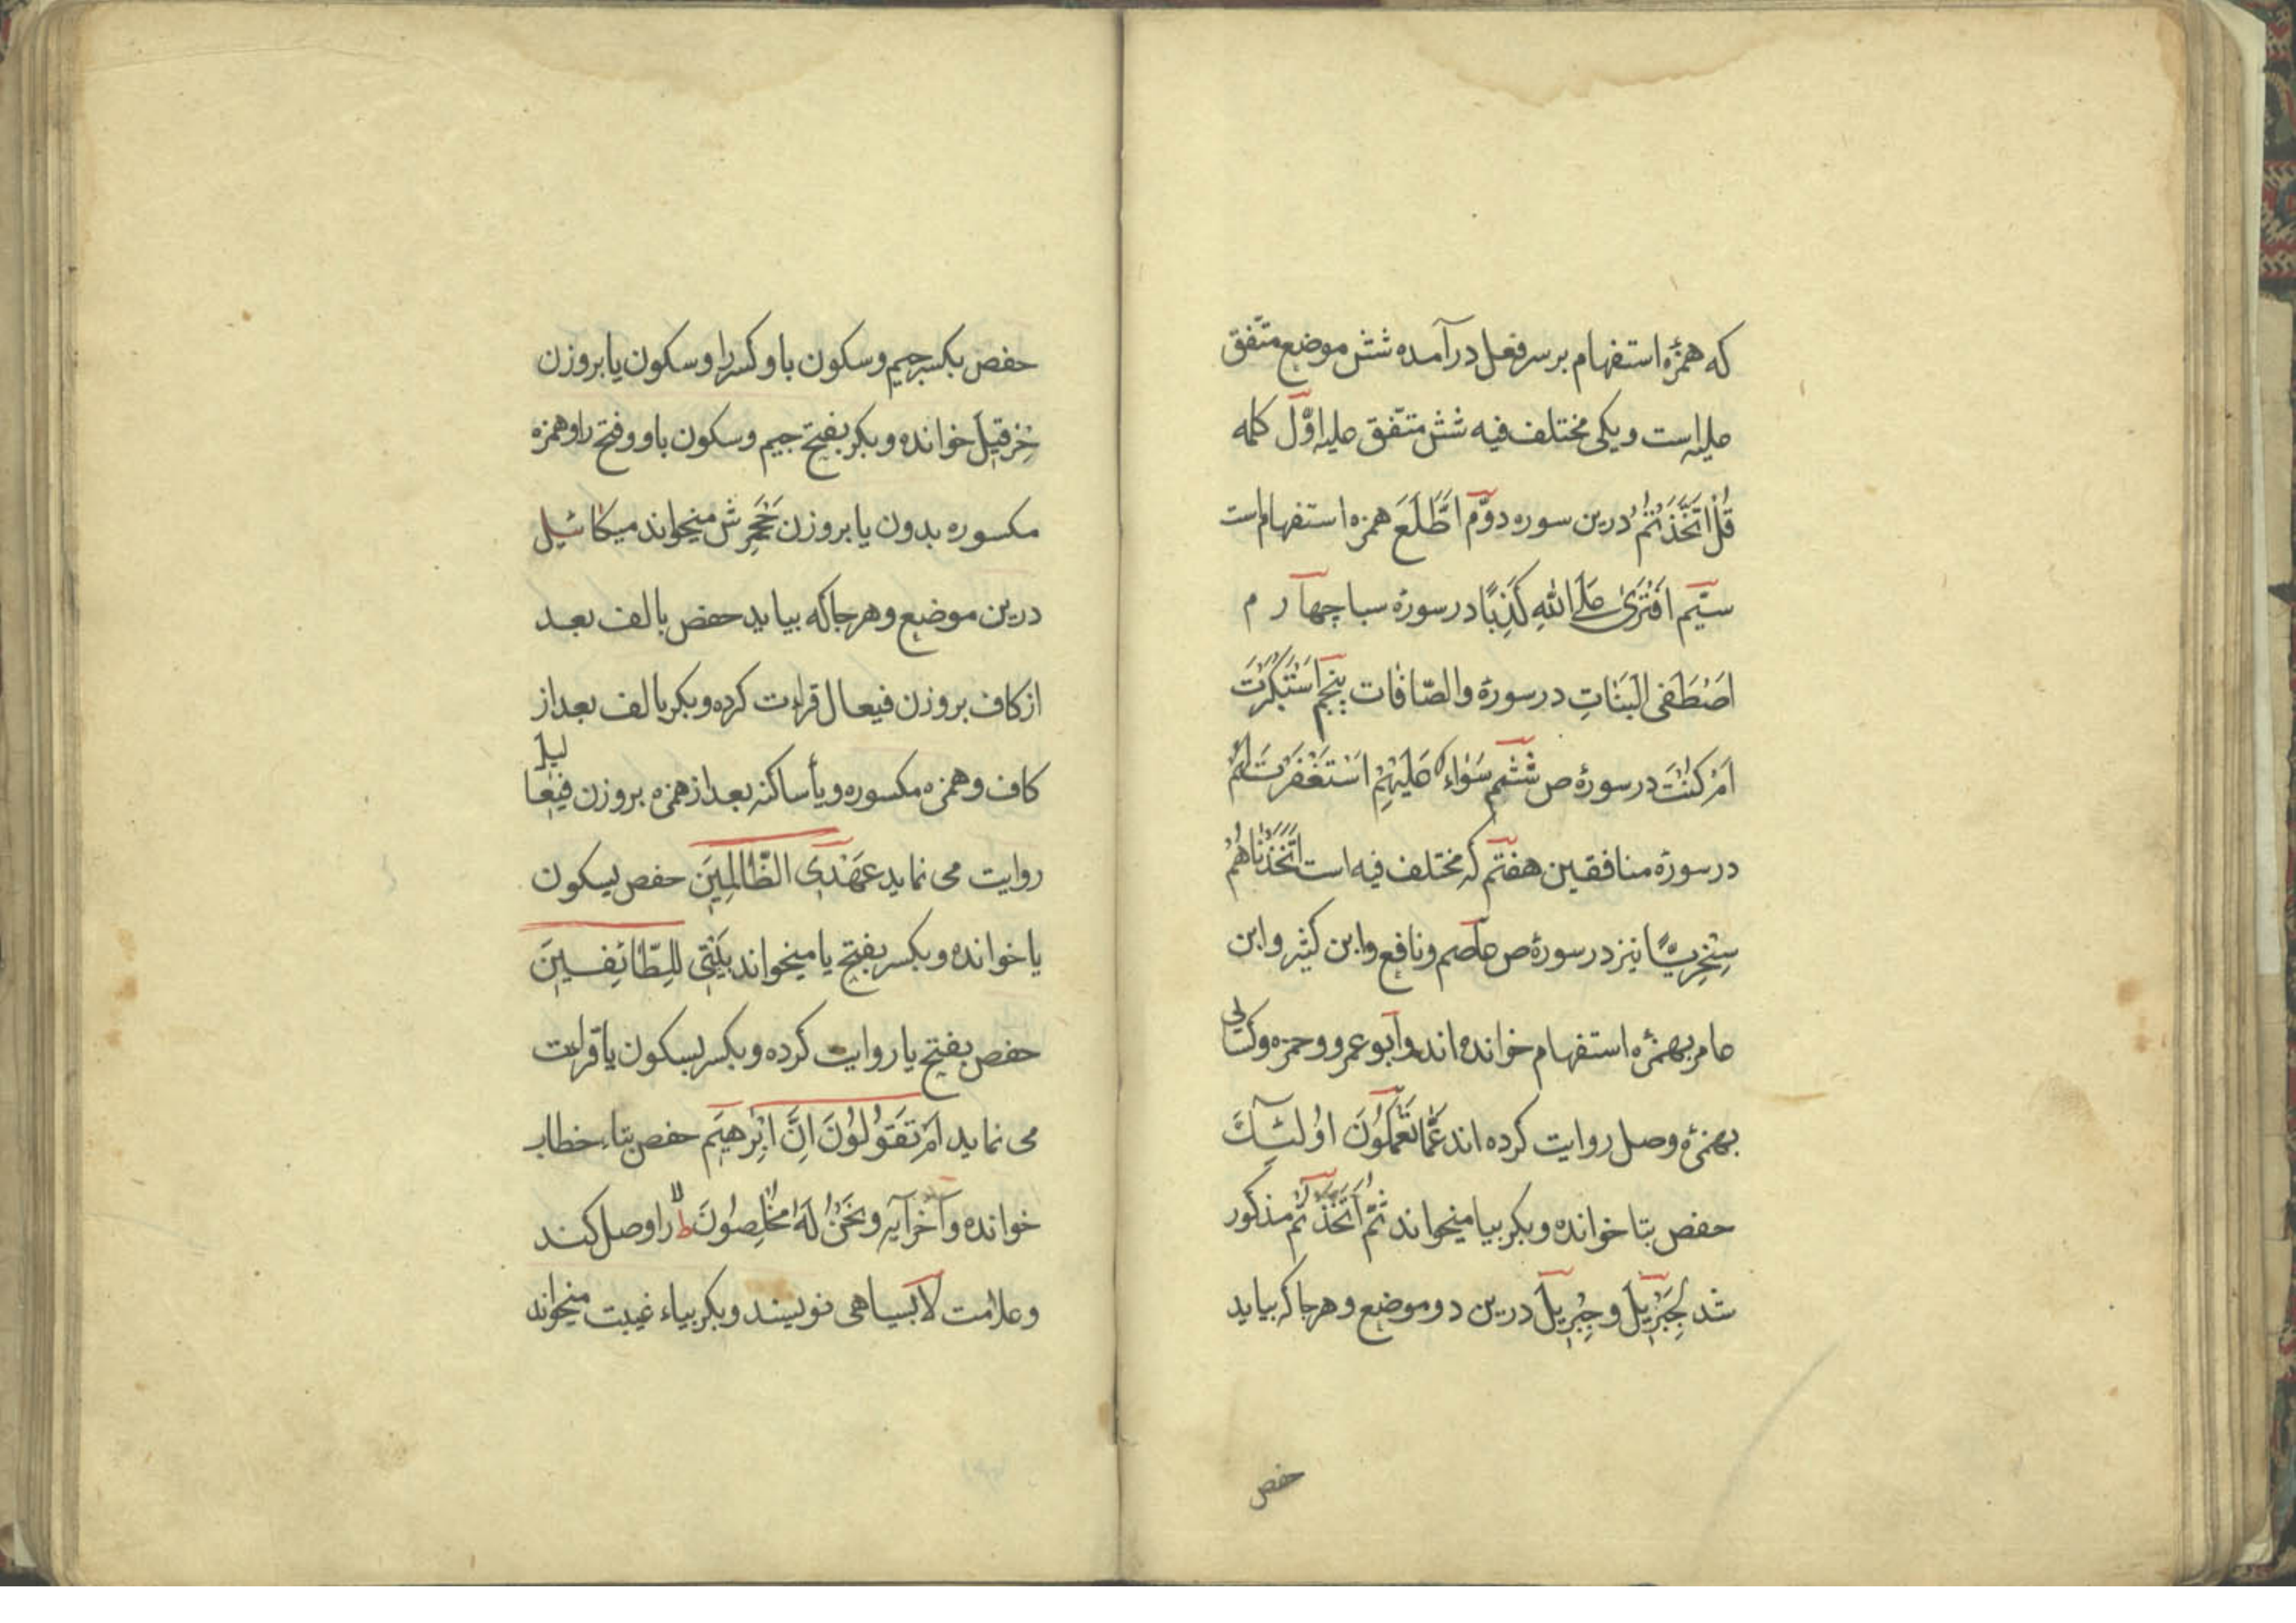 که همزهٔ استفهام بر سر فعل درآمده شش موضع متّفق
علیه است و یکی مختلف فیه شش متّفق علیه اوّل کلمه
قُلْ اَتَّخَذْتُمْ درین سوره دوّم اَطَّلَعَ همزه استفهام است
سیّم اَفْتَرَىٰ عَلَى اللّٰهِ كَذِبًا در سورهٔ سبا چهارم
اَصْطَفَى الْبَنَاتِ در سورهٔ والصّافات پنجم اَسْتَكْبَرْتَ
اَمْ كُنْتَ در سورهٔ ص ششم سَوَاءٌ عَلَيْهِمْ اَسْتَغْفَرْتَ لَهُمْ
در سورهٔ منافقین هفتم که مختلف فیه است اَتَّخَذْنَاهُمْ
سِخْرِيًّا نیز در سورهٔ ص عاصم و نافع و ابن کثیر و ابن
عامر بهمزهٔ استفهام خوانده‌اند و ابو عمرو و حمزه و کسائی
بهمزهٔ وصل روایت کرده‌اند عَمَّا تَعْمَلُونَ اُولٰئِكَ
حفص بتا خوانده و بکر بیا میخواند ثُمَّ اتَّخَذْتُمْ مذکور
شد لِجِبْرِيلَ و جِبْرِيلَ درین دو موضع و هرجا که بیاید
حفص
حفص بکسر جیم و سکون با و کسر را و سکون یا بر وزن
خِزْقِيلَ خوانده و بکر بفتح جیم و سکون با و و فتح را و همزه
مکسوره بدون یا بر وزن جَحْمَرِش میخواند میکائیل
درین موضع و هرجا که بیاید حفص بالف بعد
از کاف بر وزن فیعال قراءت کرده و بکر بالف بعد از
کاف و همزه مکسوره و یاٴ ساکنه بعد از همزه بر وزن فیعالیل
روایت می نماید عَهْدِى الظَّالِمِينَ حفص بسکون
یا خوانده و بکسر بفتح یا میخواند بَيْتِيَ لِلطَّائِفِينَ
حفص بفتح یا روایت کرده و بکسر بسکون یا قراءت
می نماید اَمْ تَقُولُونَ اِنَّ اِبْرٰهِيمَ حفص بتاء خطاب
خوانده و آخر آیه وَنَحْنُ لَهُ مُخْلِصُونَ لا ط را وصل کند
و علامت لا بسیاهی نویسند و بکر بیاء غیبت میخواند